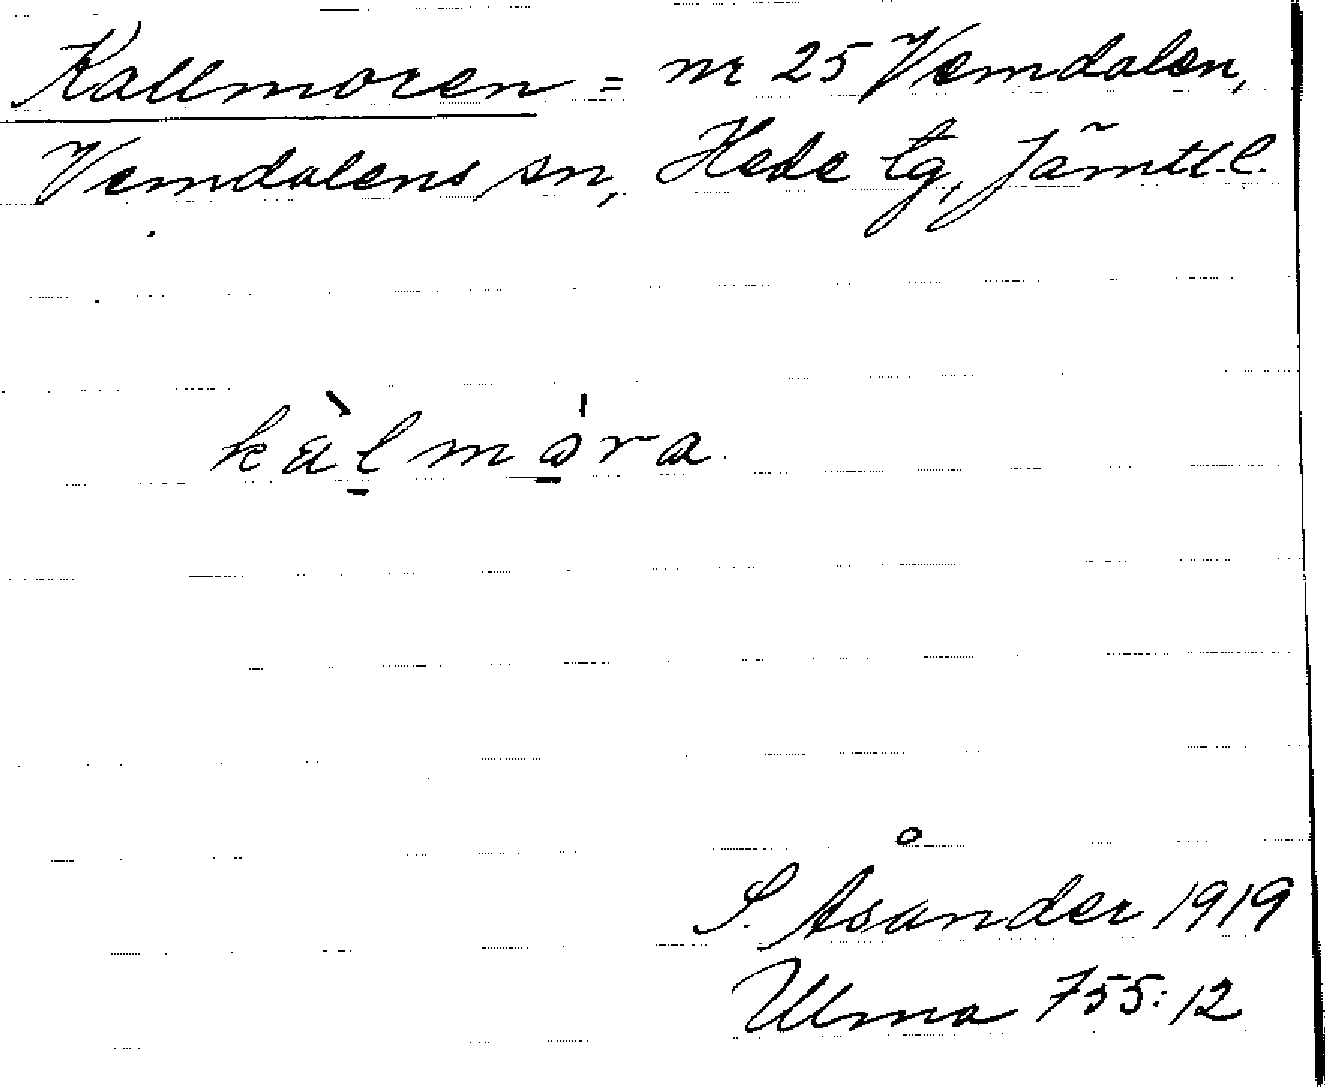 Kallmoren = nr 25 Vemdalen,
Vemdalens sn, Hede tg, Jämtl. l.
kàlmåra
S. Åsander 1919
Ulma 755:12